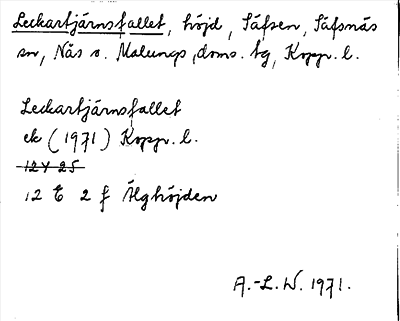 Leckartjärnsfallet, höjd, Säfsen, Säfsnäs
sn, Nås o. Malungs doms. tg, Kopp. l.
Leckartjärnsfallet
ek (1971) Kopp. l.
12 Y 25
12 E 2 f Älghöjden
A.-L. W. 1971.